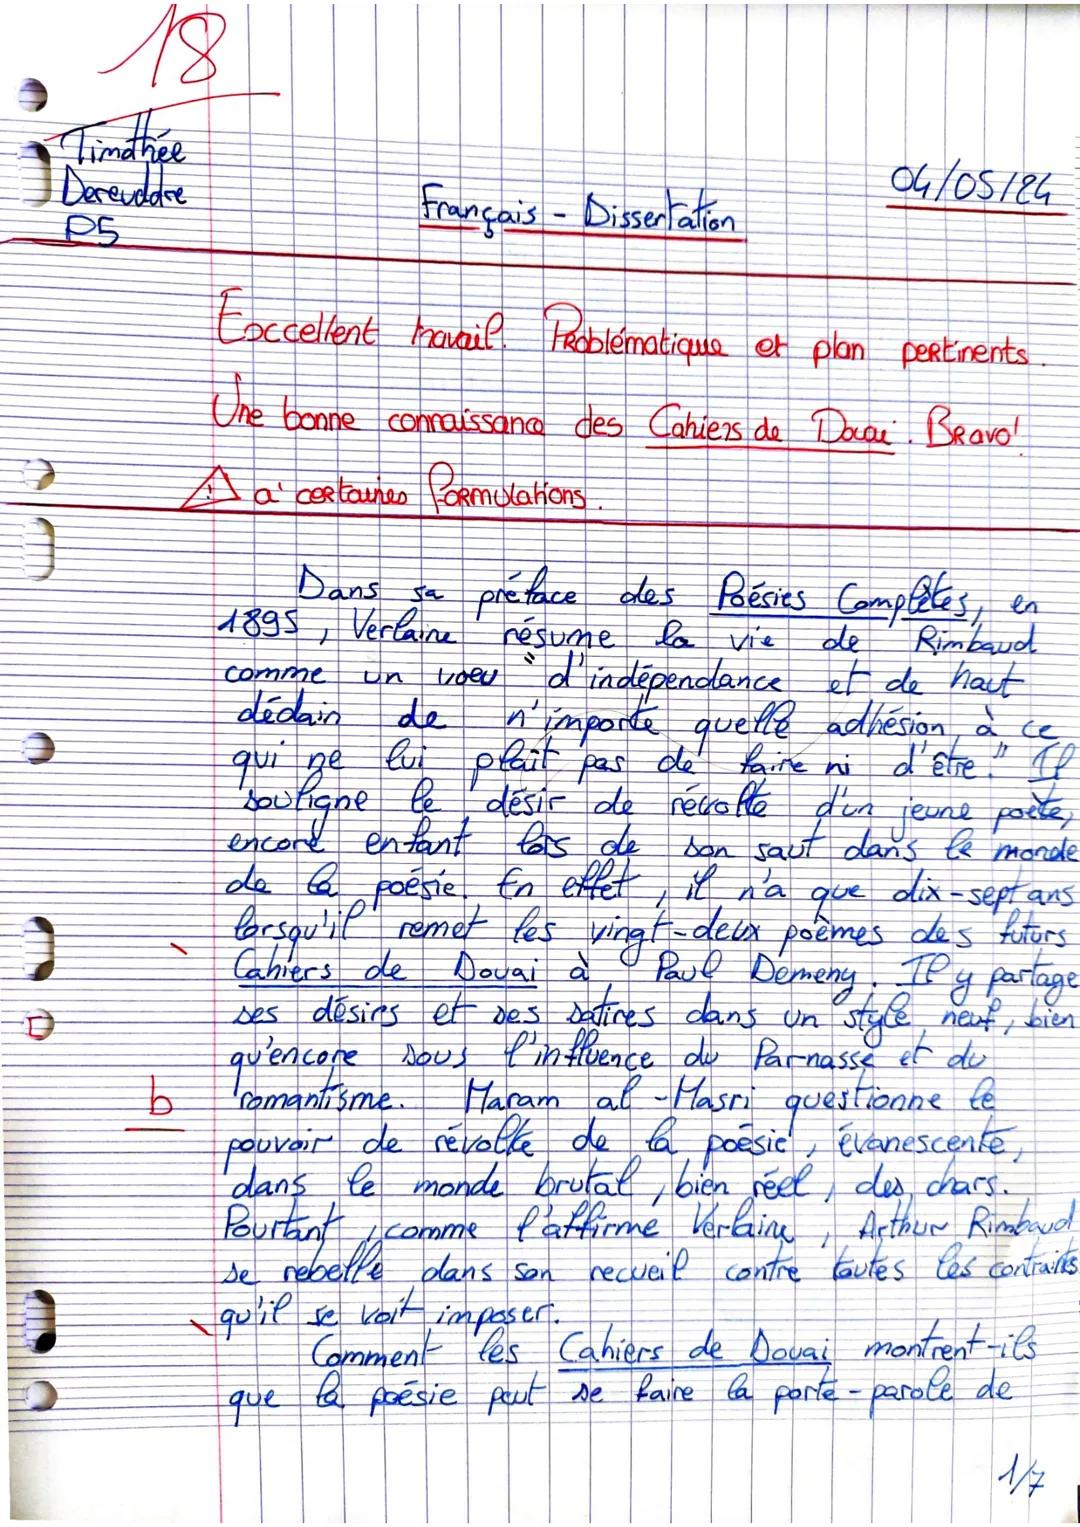 18
Timothée
Dereuddre
P5
04/05/24
Français - Dissertation
Excellent travail. Problématique et plan pertinents.
Une bonne connaissance des Cahiers de Douai. Bravo!
⚠ à certaines formulations.
Dans sa préface des Poésies Complètes, en
1895, Verlaine résume la vie de Rimbaud
comme un voeu "d'indépendance et de haut
dédain de n'importe quelle adhésion à ce
qui ne lui plaît pas de faire ni d'être." Il
souligne le désir de révolte d'un jeune poète,
encore enfant lors de son saut dans le monde
de la poésie. En effet, il n'a que dix-sept ans
lorsqu'il remet les vingt-deux poèmes des futurs
Cahiers de Douai à Paul Demeny. Il y partage
ses désirs et ses satires dans un style neuf, bien
qu'encore sous l'influence du Parnasse et du
b
romantisme. Maram al-Masri questionne le
pouvoir de révolte de la poésie, évanescente,
dans le monde brutal, bien réel, des chars.
Pourtant, comme l'affirme Verlaine, Arthur Rimbaud
se rebelle dans son recueil contre toutes les contraits
qu'il se voit imposer.
Comment les Cahiers de Douai montrent-ils
que la poésie peut se faire la porte-parole de
1/7